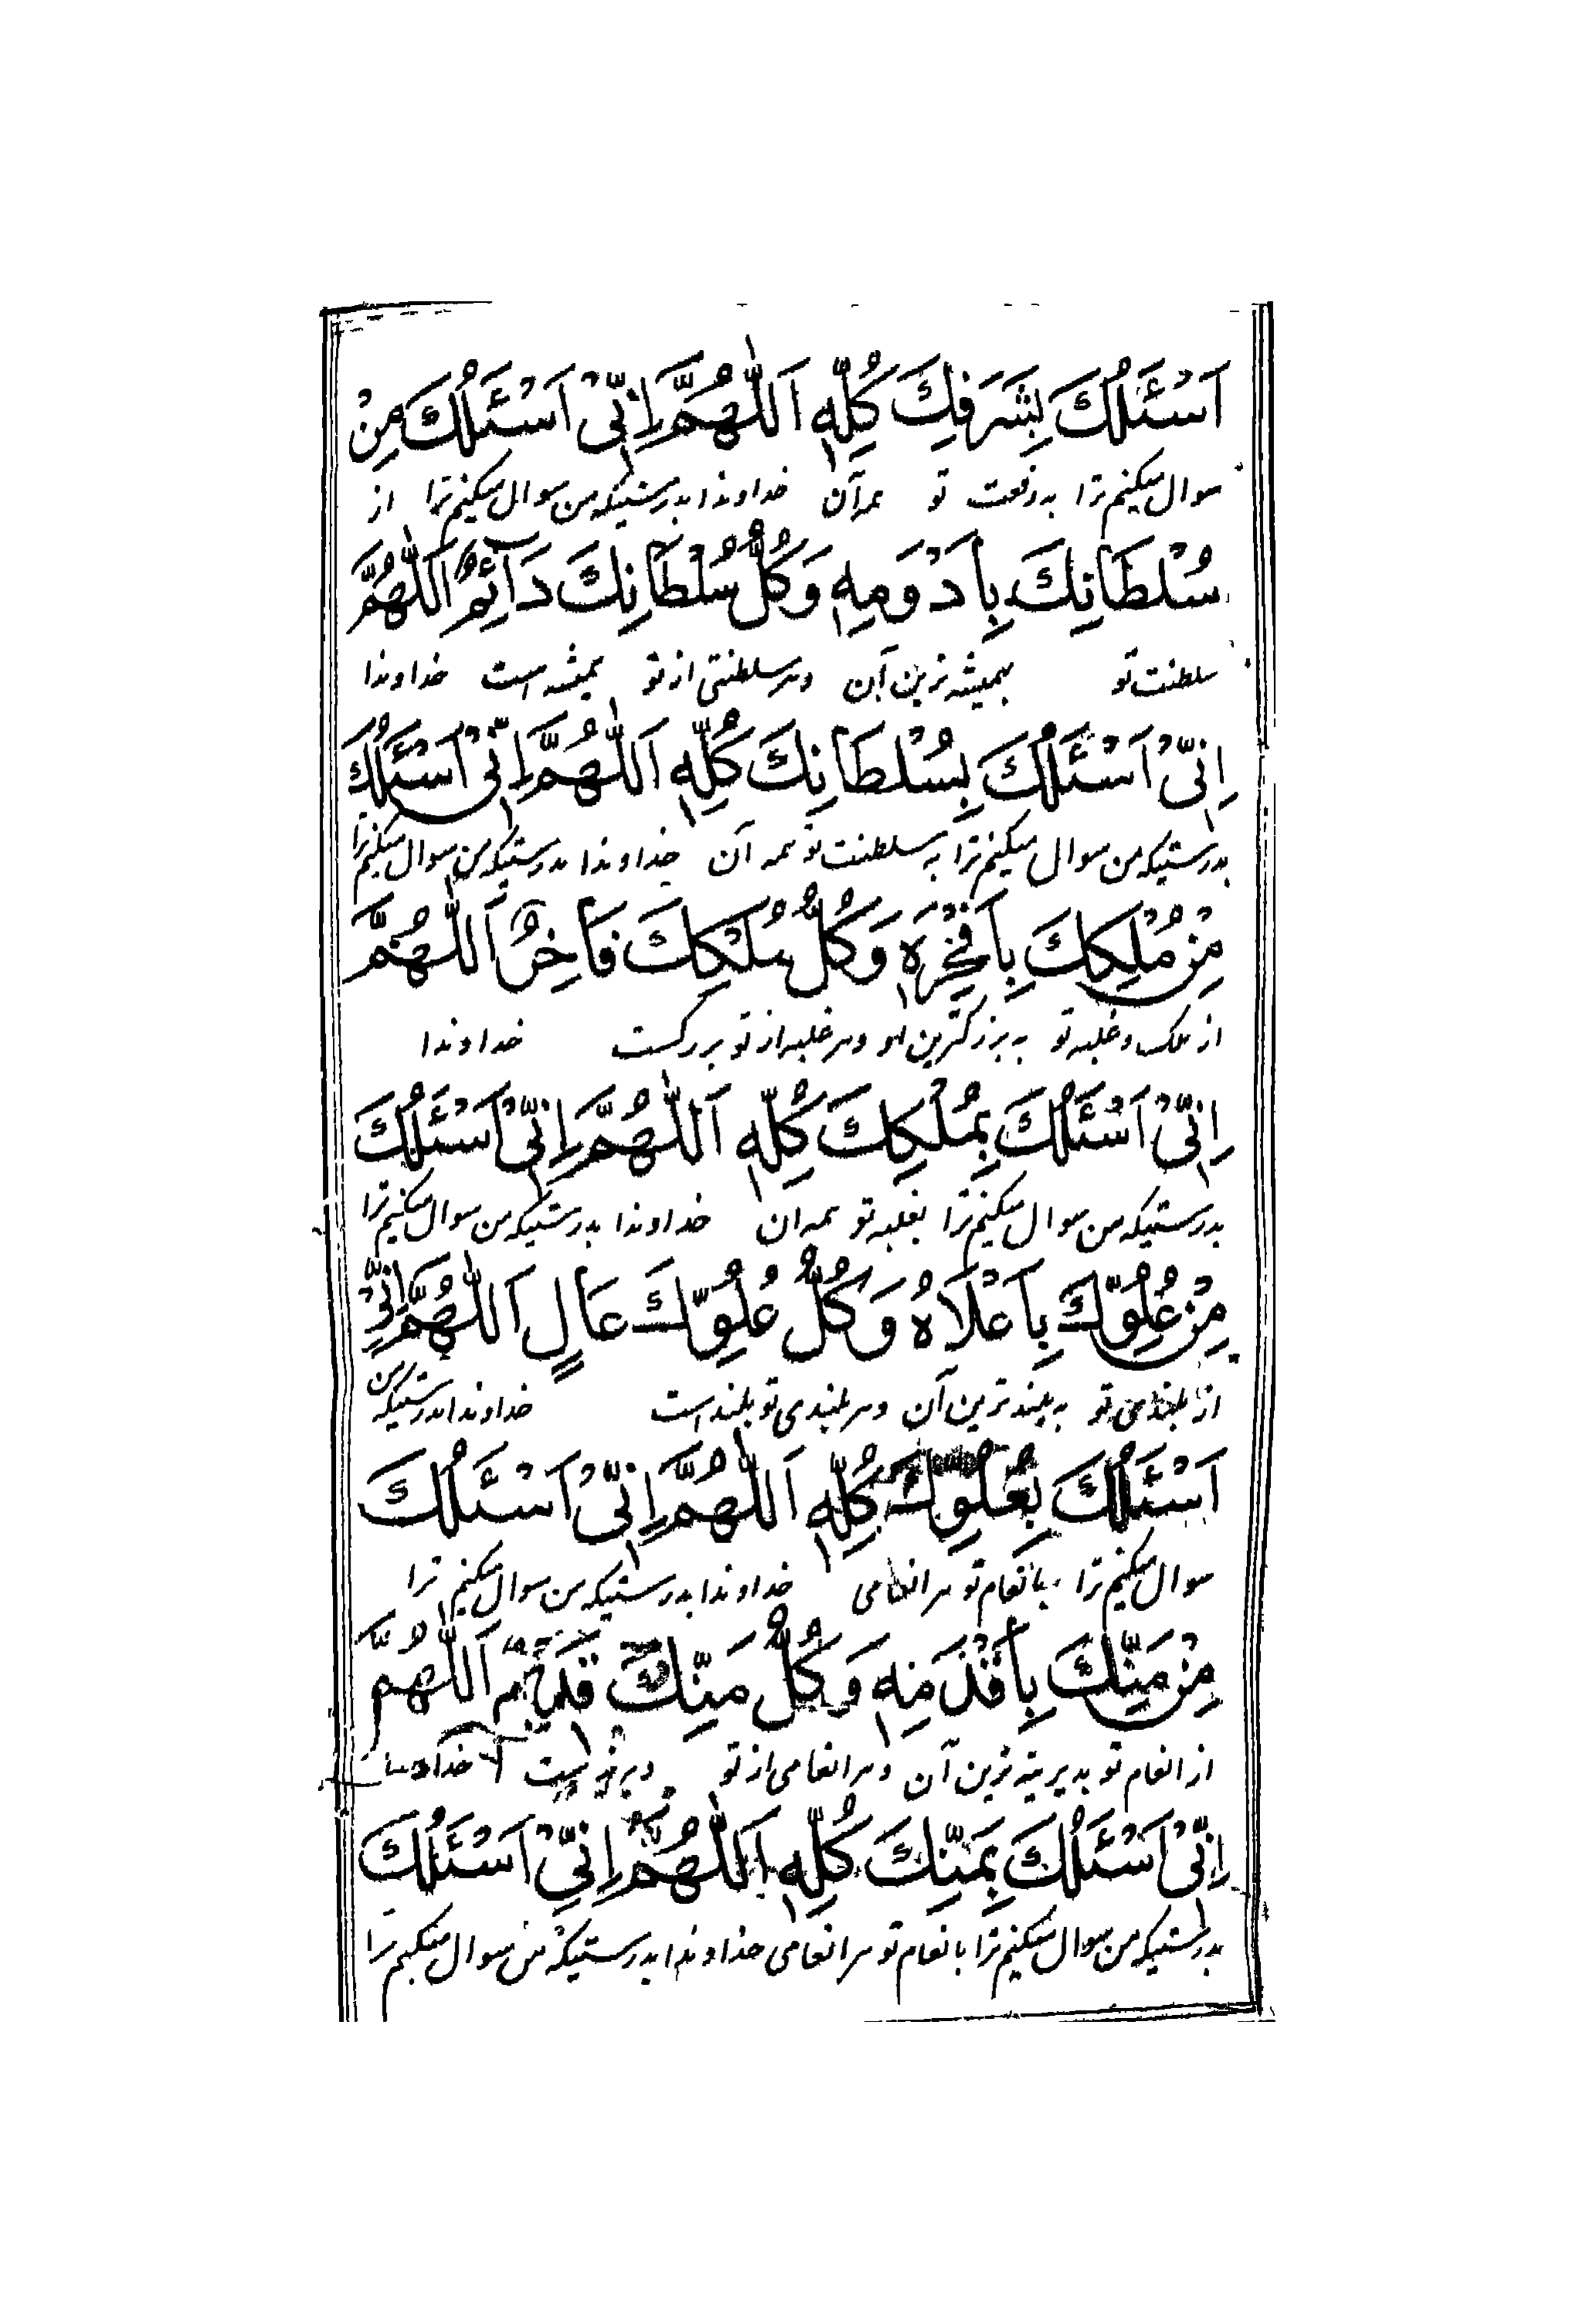 اَسْئَلُكَ بِشَرَفِكَ كُلِّهِ اَللّٰهُمَّ اِنّیْ اَسْئَلُكَ مِنْ
سوال میکنم ترا به رفعت تو همه آن خداوندا بدرستیکه من سوال میکنم ترا از
سُلْطَانِكَ بِاَدْوَمِهِ وَكُلُّ سُلْطَانِكَ دَآئِمٌ اَللّٰهُمَّ
سلطنت تو بهمیشه ترین آن و هر سلطنتی از تو همیشه است خداوندا
اِنّیْ اَسْئَلُكَ بِسُلْطَانِكَ كُلِّهِ اَللّٰهُمَّ اِنّیْ اَسْئَلُكَ
بدرستیکه من سوال میکنم ترا به سلطنت تو همه آن خداوندا بدرستیکه من سوال میکنم ترا
مِنْ مُلْكِكَ بِاَفْخَرِهِ وَكُلُّ مُلْكِكَ فَاخِرٌ اَللّٰهُمَّ
از ملک و غلبه تو به بزرگترین او و هر غلبه از تو بزرگست خداوندا
اِنّیْ اَسْئَلُكَ بِمُلْكِكَ كُلِّهِ اَللّٰهُمَّ اِنّیْ اَسْئَلُكَ
بدرستیکه من سوال میکنم ترا بغلبه تو همه ان خداوندا بدرستیکه من سوال میکنم ترا
مِنْ عُلُوِّكَ بِاَعْلَاهُ وَكُلُّ عُلُوِّكَ عَالٍ اَللّٰهُمَّ اِنّیْ
از بلندی تو به بلندترین آن و هر بلندی تو بلند است خداوندا بدرستیکه من
اَسْئَلُكَ بِعُلُوِّكَ كُلِّهِ اَللّٰهُمَّ اِنّیْ اَسْئَلُكَ
سوال میکنم ترا بانعام تو هر انعامی خداوندا بدرستیکه من سوال میکنم ترا
مِنْ مَنِّكَ بِاَقْدَمِهِ وَكُلُّ مَنِّكَ قَدِيْمٌ اَللّٰهُمَّ
از انعام تو بدیرینه ترین آن و هر انعامی از تو است خداوندا
اِنّیْ اَسْئَلُكَ بِمَنِّكَ كُلِّهِ اَللّٰهُمَّ اِنّیْ اَسْئَلُكَ
بدرستیکه من سوال میکنم ترا بانعام تو هر انعامی خداوندا بدرستیکه من سوال میکنم ترا